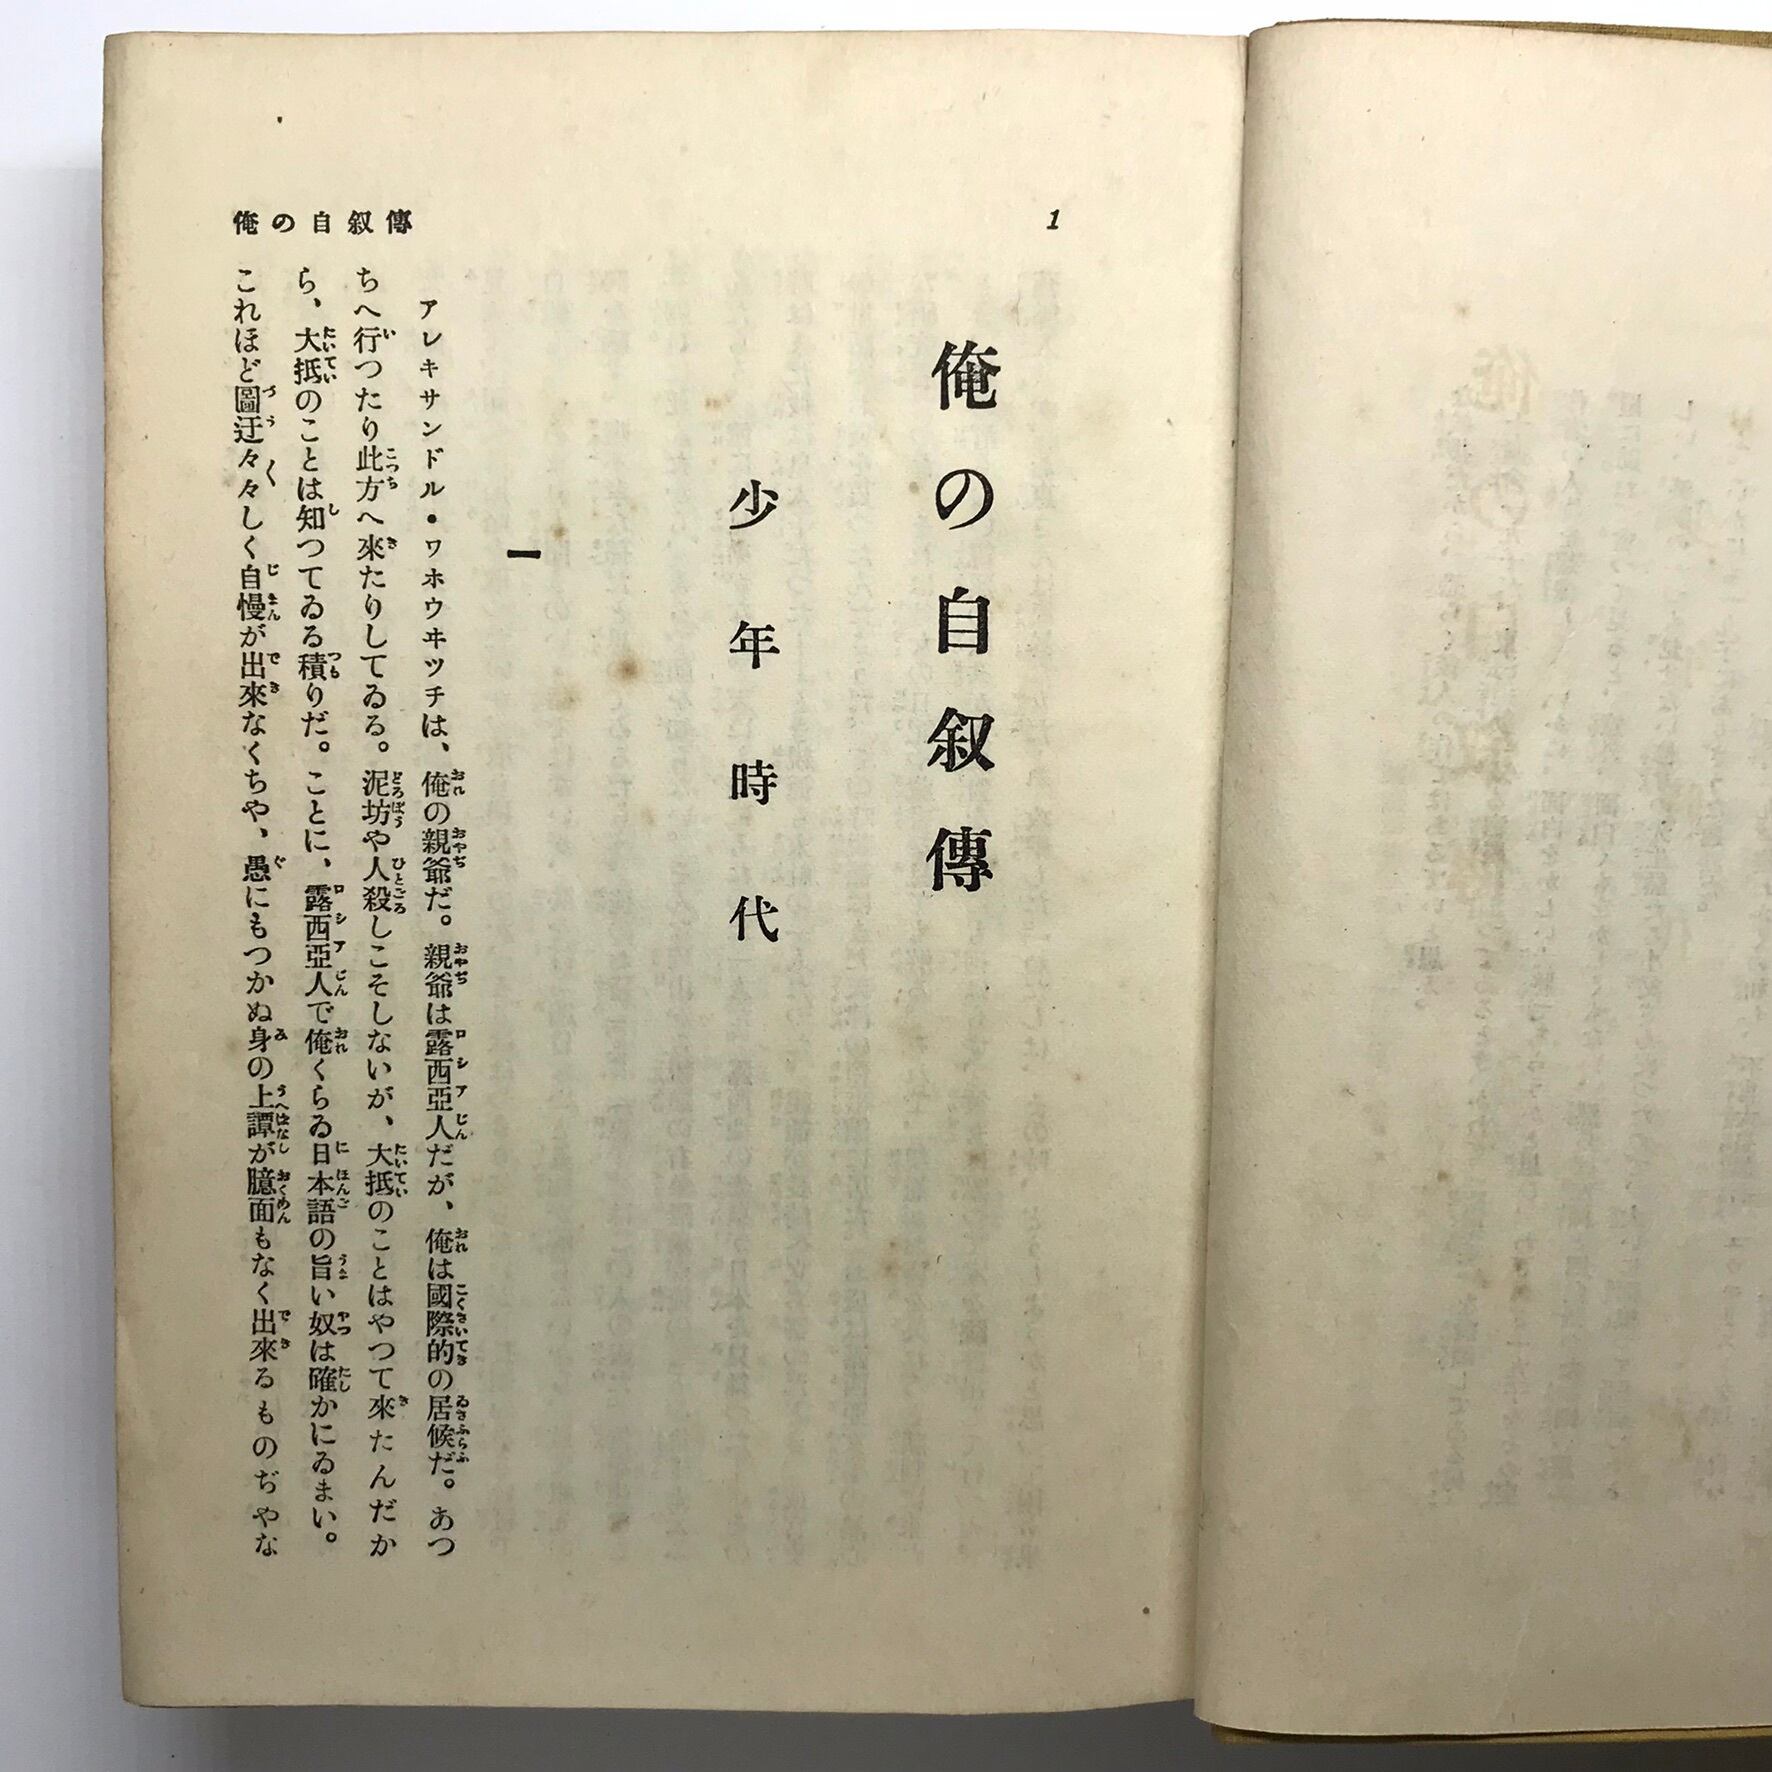 俺の自叙傳
1
俺の自叙傳
少年時代
一
アレキサンドル・ワホウヰツチは、俺の親爺だ。親爺は露西亞人だが、俺は國際的の居候だ。あつ
ちへ行つたり此方へ來たりしてゐる。泥坊や人殺しこそしないが、大抵のことはやつて來たんだか
ら、大抵のことは知つてゐる積りだ。ことに、露西亞人で俺くらゐ日本語の旨い奴は確かにゐまい。
これほど圖迂々々しく自慢が出來なくちや、愚にもつかぬ身の上譚が臆面もなく出來るものぢやな